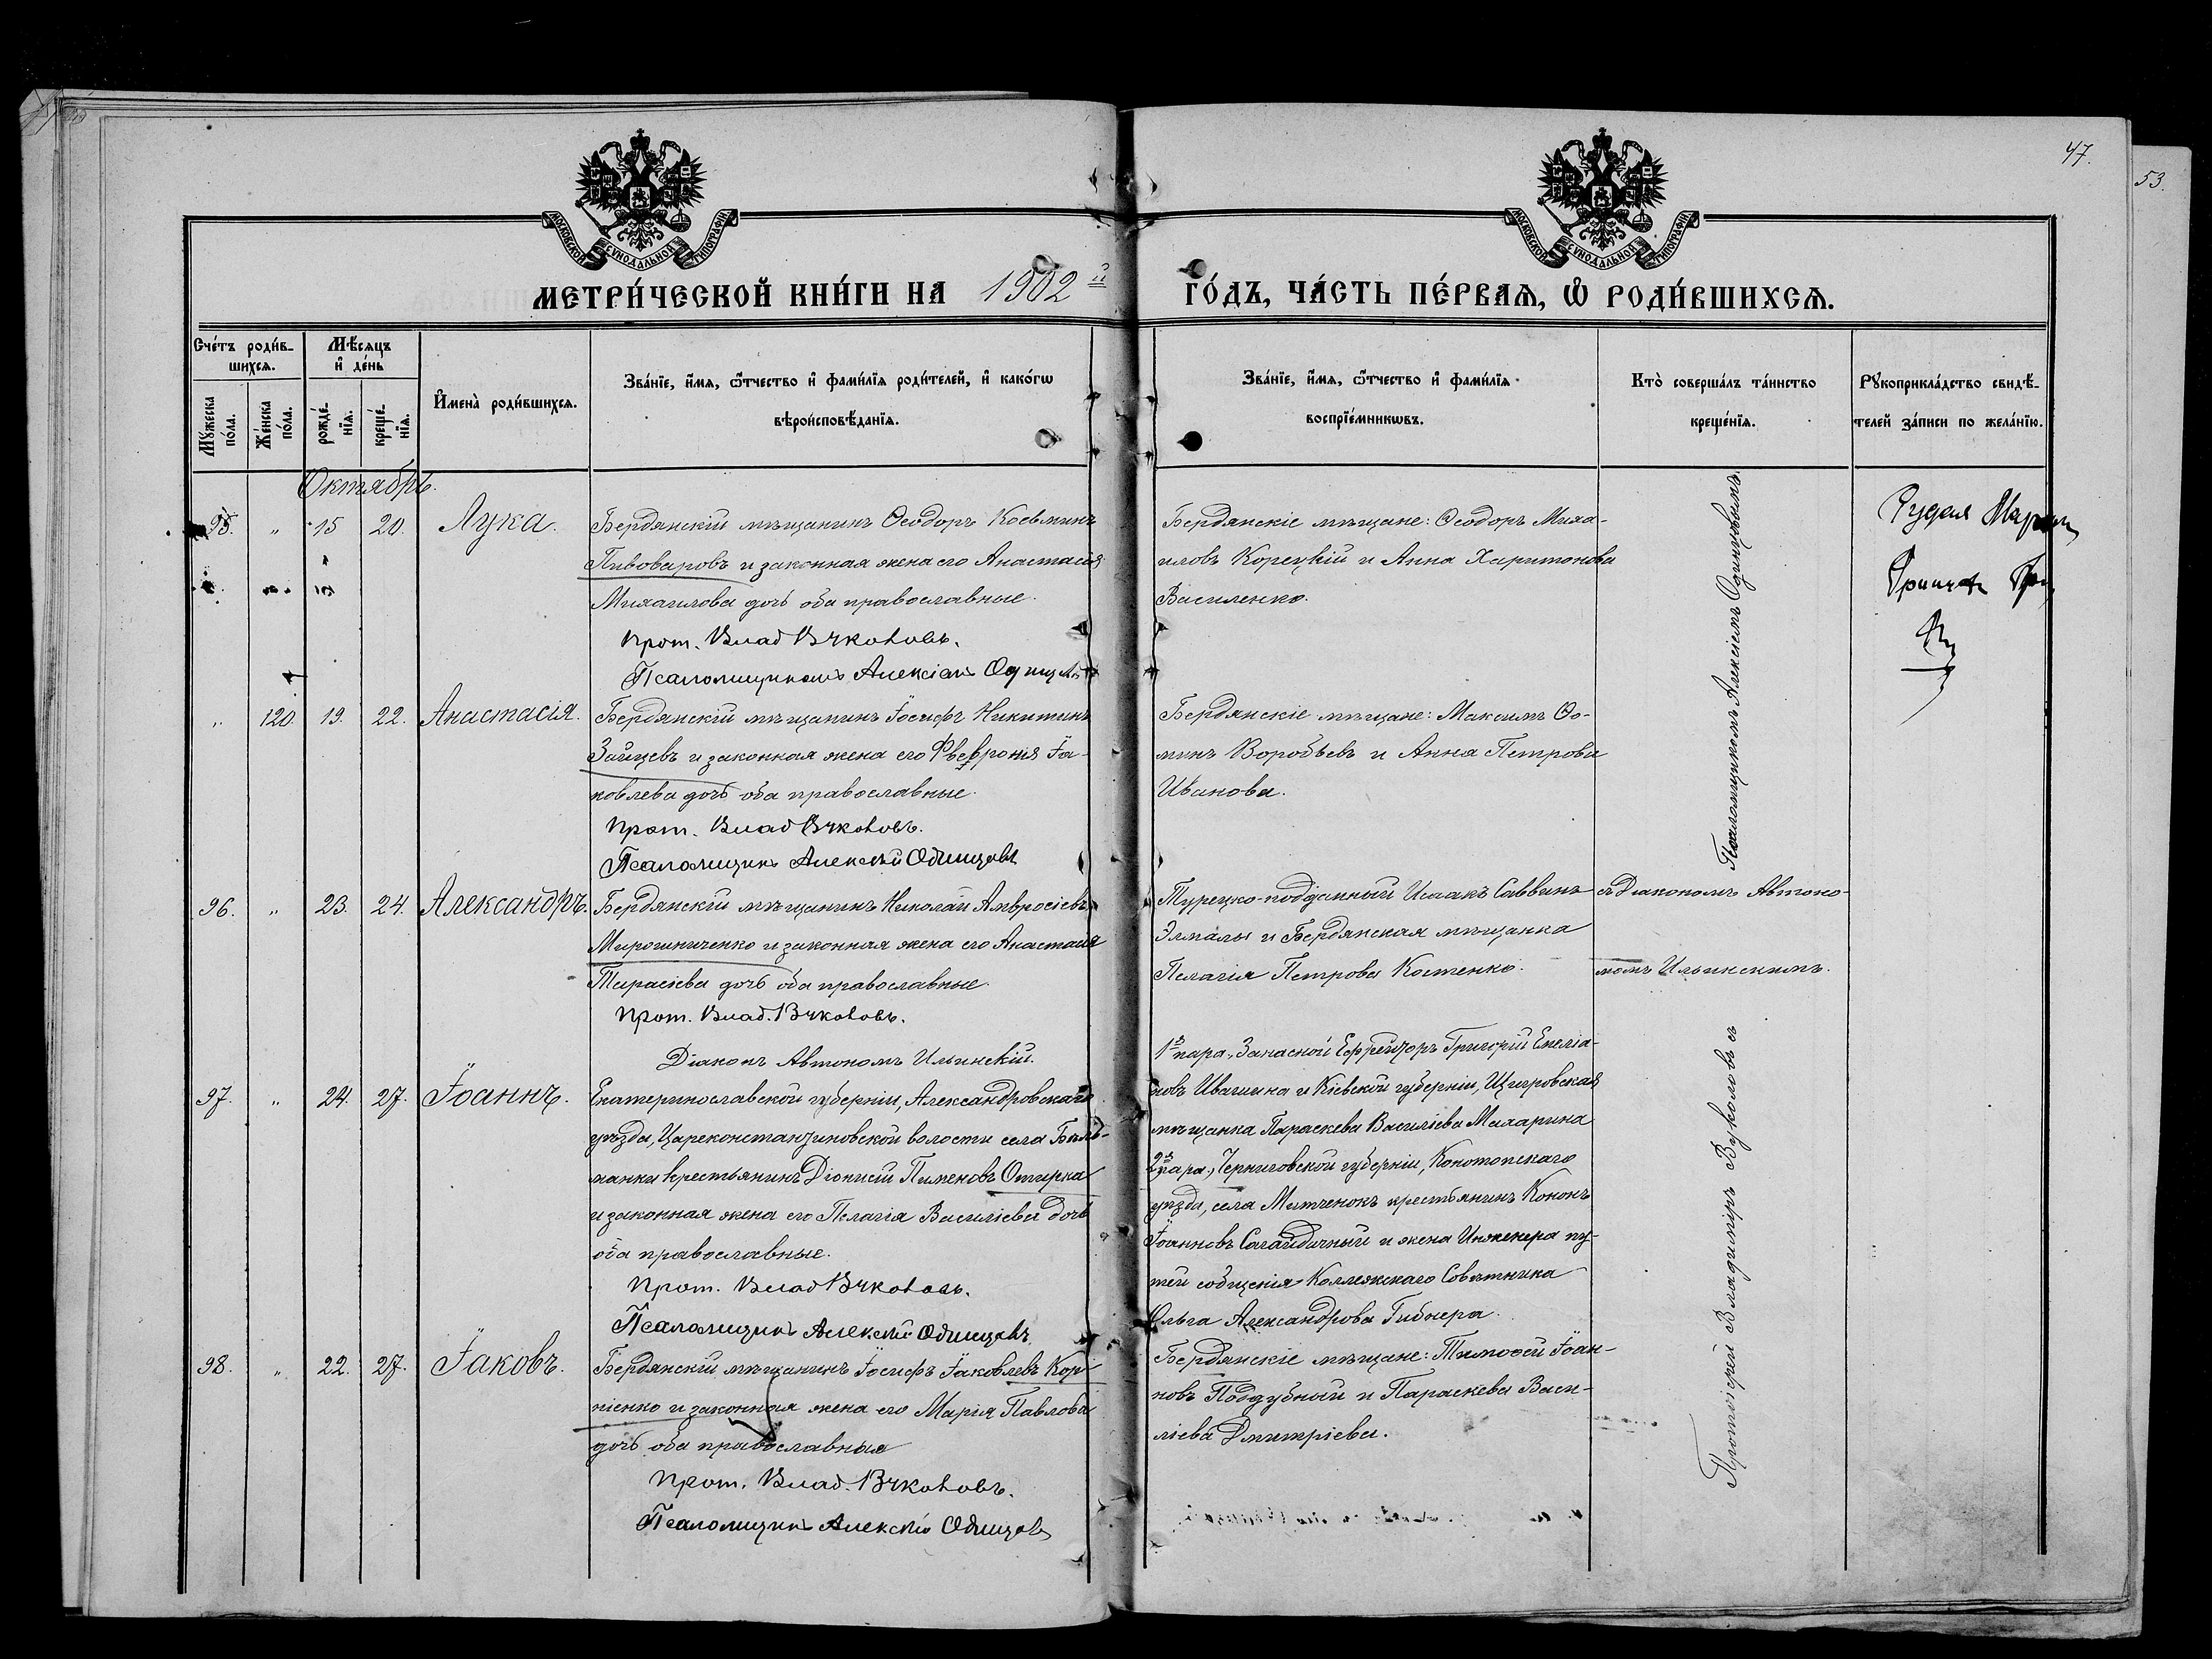 47.
53.
МОСКОВСКОЙ СѴНОДАЛЬНОЙ ТИПОГРАФІИ
МОСКОВСКОЙ СѴНОДАЛЬНОЙ ТИПОГРАФІИ
МЕТРИ́ЧЕСКОЙ КНИ́ГИ НА 1902й ГО́ДЪ, ЧА́СТЬ ПЕ́РВАѦ, Ѡ҆ РОДИ́ВШИХСѦ.
Сче́тъ роди́в-
шихсѧ.
Мꙋ́жеска по́ла.
Же́нска по́ла.
Мѣ́сѧцъ и҆ де́нь
рожде́-нїѧ.
креще́-нїѧ.
И҆мена̀ роди́вшихсѧ.
Зва́нїе, и҆́мѧ, ѻ҆́тчество и҆ фами́лїѧ роди́телей, и҆ како́гѡ
вѣроисповѣ́данїѧ.
Зва́нїе, и҆́мѧ, ѻ҆́тчество и҆ фами́лїѧ
воспрїе́мникѡвъ.
Кто̀ соверша́лъ та́инство
креще́нїѧ.
Рꙋкоприкла́дство свидѣ́-
телей за́писи по жела́нїю.
Октябрь.
95. " 15 20. Лука.
Бердянскій мѣщанинъ Ѳеодоръ Косьминъ
Пивоваровъ и законная жена его Анастасія
Михаилова дочь оба православные.
Прот. Влад Вуколовъ.
Псаломщикомъ Алексіемъ
Бердянскіе мѣщане: Ѳеодоръ Миха-
иловъ Корецкій и Анна Харитонова
Василенко.
Псаломщикомъ Алексіемъ Одинцовымъ
" 120. 19. 22. Анастасія.
Бердянскій мѣщанинъ Іосифъ Никитинъ
Зайцевъ и законная жена его Ѳевронія Іа-
ковлева дочь оба православные.
Прот. Влад Вуколовъ.
Псаломщикъ Алексій Одинцовъ
Бердянскіе мѣщане: Максимъ Ѳо-
минъ Воробьевъ и Анна Петрова
Иванова.
96. " 23. 24. Александръ.
Бердянскій мѣщанинъ Николай Амвросіевъ
Мирошниченко и законная жена его Анастасія
Тарасіева дочь оба православные.
Прот. Влад. Вуколовъ.
Діаконъ Автономъ Ильинскій.
Турецко-подданный Исаакъ Саввинъ
Элмалы и Бердянская мѣщанка
Пелагія Петрова Костенко.
съ Діакономъ Автоно-
момъ Ильинскимъ.
97. " 24. 27. Іоаннъ.
Екатеринославской губерніи, Александровскаго
уѣзда, Цареконстантиновской волости села Бель-
манки крестьянинъ Діонисій Пименовъ Отирка
и законная жена его Пелагія Василіева дочь
оба православные.
Прот. Влад Вуколовъ.
Псаломщикъ Алексій Одинцовъ
1я пара, Запасной Ефрейторъ Григорій Емеліа-
новъ Ивашина и Кіевской губерніи,
мѣщанка Параскева Василіева
2я пара, Черниговской губерніи, Конотопскаго
уѣзда, села Митченокъ крестьянинъ Кононъ
Іоанновъ Сагайдачный и жена Инженера пу-
тей собщенія Коллежскаго Совѣтника
Ольга Александрова
Протоіерей Владиміръ Вуколовъ съ
98. " 22. 27. Іаковъ.
Бердянскій мѣщанинъ Іосифъ Іаковлевъ Кор-
ніенко и законная жена его Марія Павлова
дочь оба православная
Прот. Влад. Вуколовъ.
Псаломщикъ Алексій Одинцовъ
Бердянскіе мѣщане: Тимоѳей Іоан-
новъ Поддубный и Параскева Васи-
ліева Дмитріева.